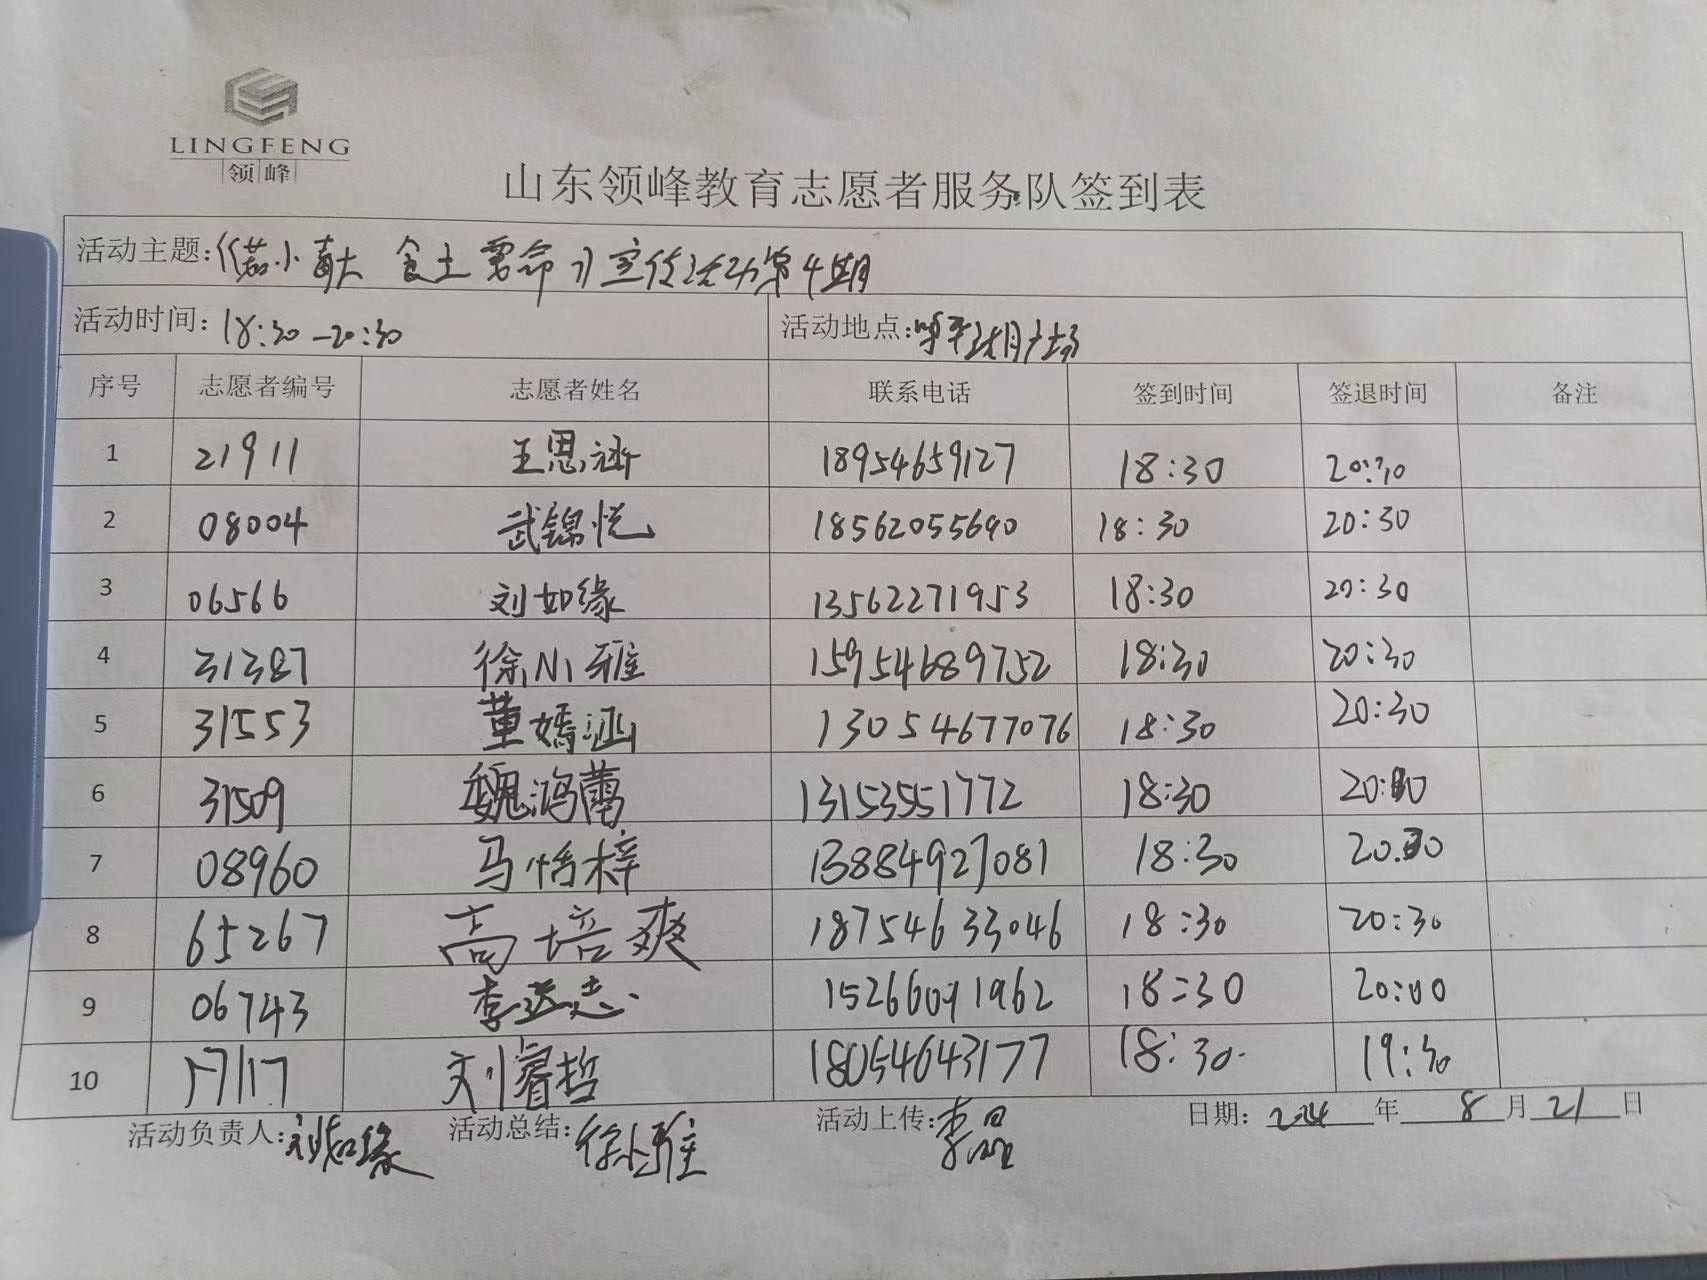 LINGFENG
领峰
山东领峰教育志愿者服务队签到表
活动主题:《菇小毒大 食土要命》宣传活动第4期
活动时间:18:30-20:30 活动地点:
序号 志愿者编号 志愿者姓名 联系电话 签到时间 签退时间 备注
1 21911 王思涵 18954659127 18:30 20:30
2 08004 武锦悦 18562055690 18:30 20:30
3 06566 刘如缘 13562271953 18:30 20:30
4 31387 徐小雅 15954689752 18:30 20:30
5 31553 董嫣涵 13054677076 18:30 20:30
6 31509 魏鸿蕾 13153551772 18:30 20:30
7 08960 马怡梓 13884927081 18:30 20:30
8 65267 高培爽 18754633046 18:30 20:30
9 06743 李远志 15266091962 18:30 20:00
10 17117 刘睿哲 18054643177 18:30 19:30
活动负责人:刘如缘 活动总结:徐小雅 活动上传:李 日期: 2024 年 8 月 21 日